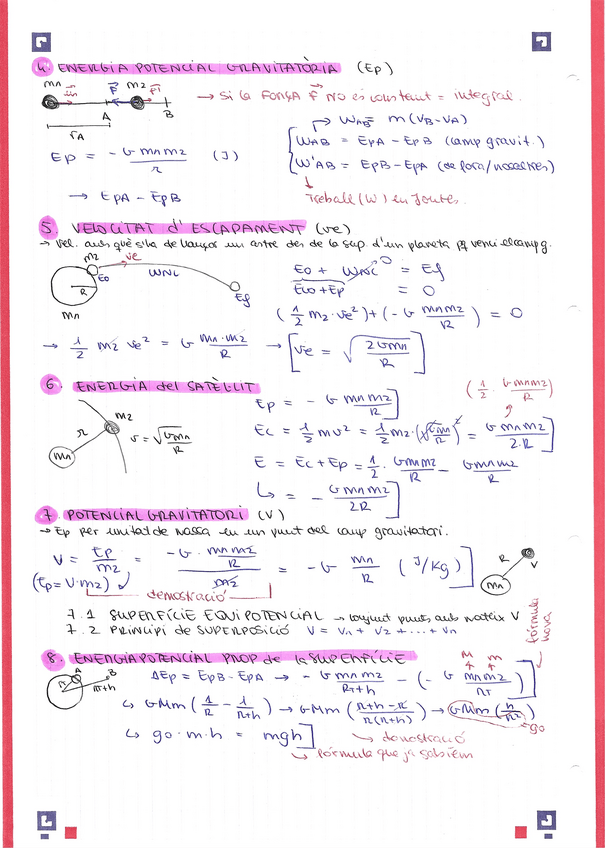 4. ENERGIA POTENCIAL GRAVITATÒRIA (Ep)
m1 m2 F A B
rA
→ Si la FORÇA F NO és constant = integral.
WAB = m(VB - VA)
WAB = EpA - EpB (camp gravit.)
W'AB = EpB - EpA (de fora/nosaltres)
Treball (W) en Joules.
Ep = - G m1 m2 / r (J)
→ EpA - EpB
5. VELOCITAT d'ESCAPAMENT (ve)
→ Vel. amb què s'ha de llançar un astre des de la sup. d'un planeta pq venci el camp g.
m2 ve E0 WNC R m1 Ef
E0 + WNC 0 = Ef
Ec0 + Ep = 0
(1/2 m2 · ve²) + (- G m1 m2 / R) = 0
→ 1/2 m2 ve² = G m1 · m2 / R → [ve = √(2Gm1 / R)]
6. ENERGIA del SATÈL·LIT
r m2 m1 v = √(Gm1 / R)
Ep = - G m1 m2 / R]
(1/2 · G m1 m2 / R)
Ec = 1/2 m v² = 1/2 m2 · (√(Gm1 / R))² = G m1 m2 / 2·R]
E = Ec + Ep = 1/2 · G m1 m2 / R - G m1 m2 / R
↳ = - G m1 m2 / 2R]
7. POTENCIAL GRAVITATORI (V)
→ Ep per unitat de massa en un punt del camp gravitatori.
V = Ep / m2 = (- G · m1 m2 / R) / m2 = - G m1 / R (J/Kg)]
R V m1
(Ep = V · m2)
demostració
7.1 SUPERFÍCIE EQUIPOTENCIAL → conjunt punts amb mateix V
7.2 PRINCIPI de SUPERPOSICIÓ V = V1 + V2 + ... + Vn
fórmula nova
8. ENERGIA POTENCIAL PROP de la SUPERFÍCIE
M m
ΔEp = EpB - EpA → - G m1 m2 / RT+h - (- G m1 m2 / RT)]
A B RT+h
↳ GMm (1/R - 1/R+h) → GMm (R+h - R / R(R+h)) → GMm (h / R²)
go
↳ g0 · m · h = mgh]
→ demostració
→ fórmula que ja sabíem